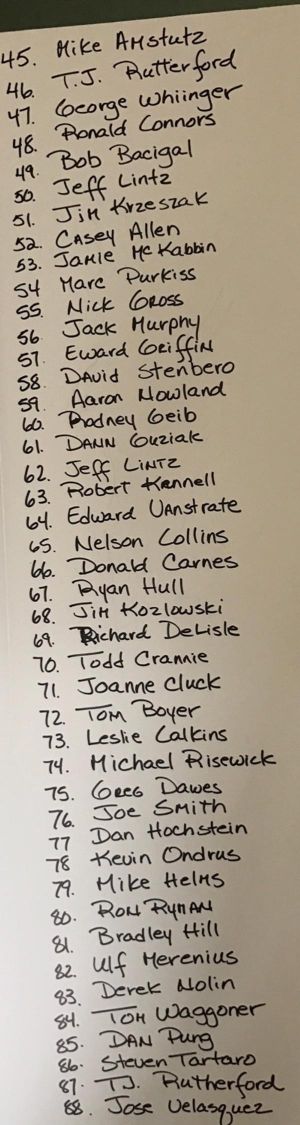 45. Mike Amstutz
46. T.J. Rutterford
47. George Whiinger
48. Ronald Connors
49. Bob Bacigal
50. Jeff Lintz
51. Jim Krzeszak
52. Casey Allen
53. Jamie McKabbin
54 Marc Purkiss
55. Nick Gross
56. Jack Murphy
57. Eward Griffin
58. David Stenbero
59. Aaron Nowland
60. Rodney Geib
61. Dann Guziak
62. Jeff Lintz
63. Robert Kennell
64. Edward Vanstrate
65. Nelson Collins
66. Donald Carnes
67. Ryan Hull
68. Jim Kozlowski
69. Richard DeLisle
70. Todd Crannie
71. Joanne Cluck
72. Tom Boyer
73. Leslie Calkins
74. Michael Risewick
75. Greg Dawes
76. Joe Smith
77 Dan Hochstein
78 Kevin Ondrus
79. Mike Helms
80. Ron Ryman
81. Bradley Hill
82. Ulf Merenius
83. Derek Nolin
84. Tom Waggoner
85. Dan Purg
86. Steven Tartaro
87. T.J. Rutherford
88. Jose Velasquez